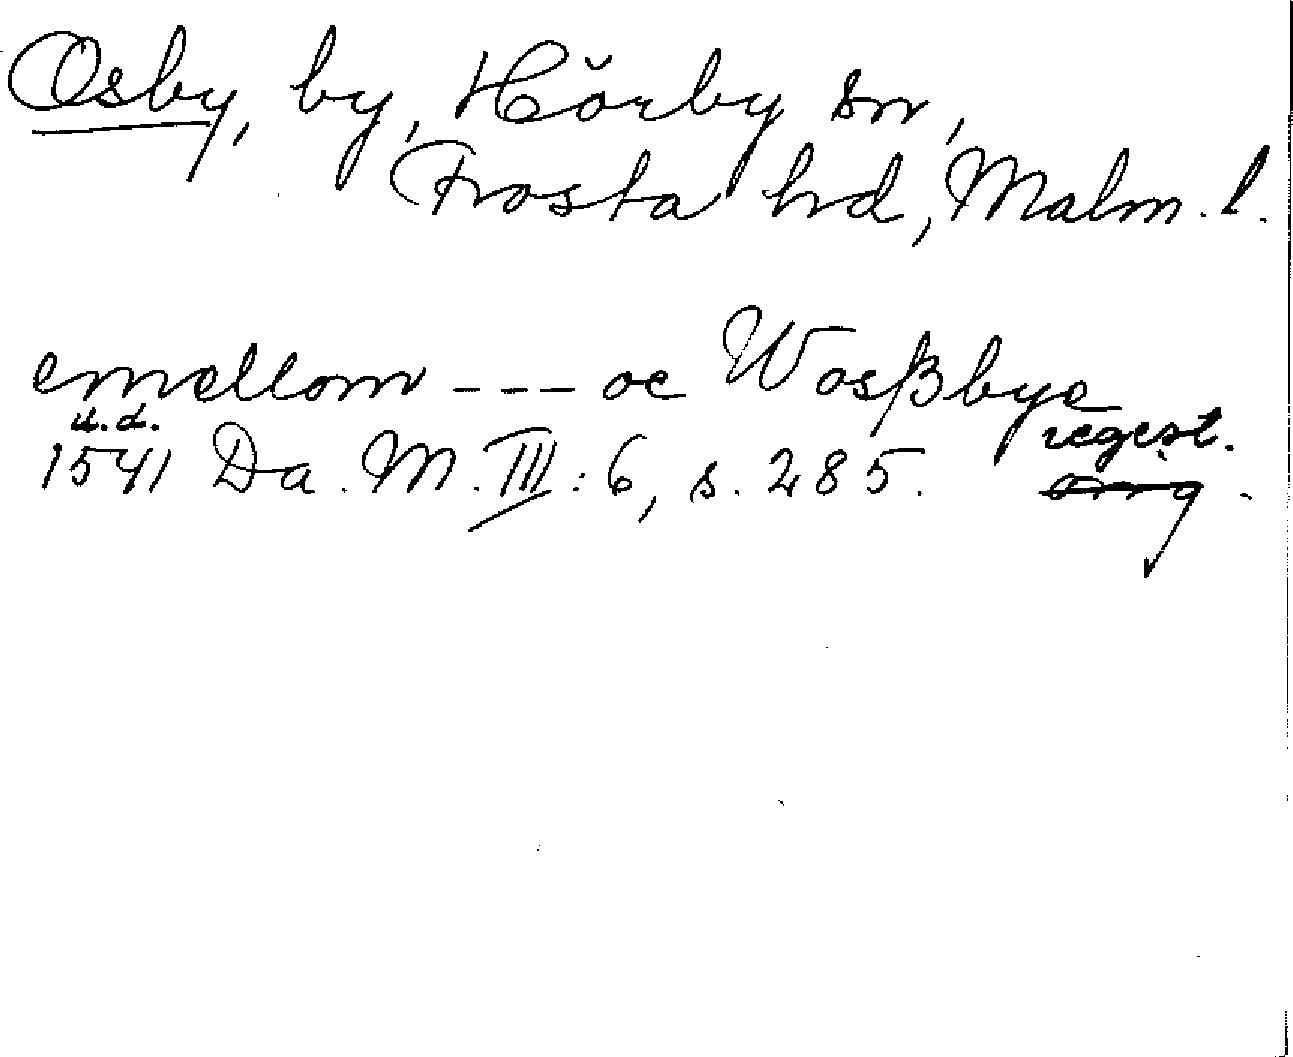 Osby, by, Hörby sn,
Frosta hd, Malm. l.
emellom --- oc Wosßbye
u.d. regest.
1541 Da. M. III: 6, s. 285.